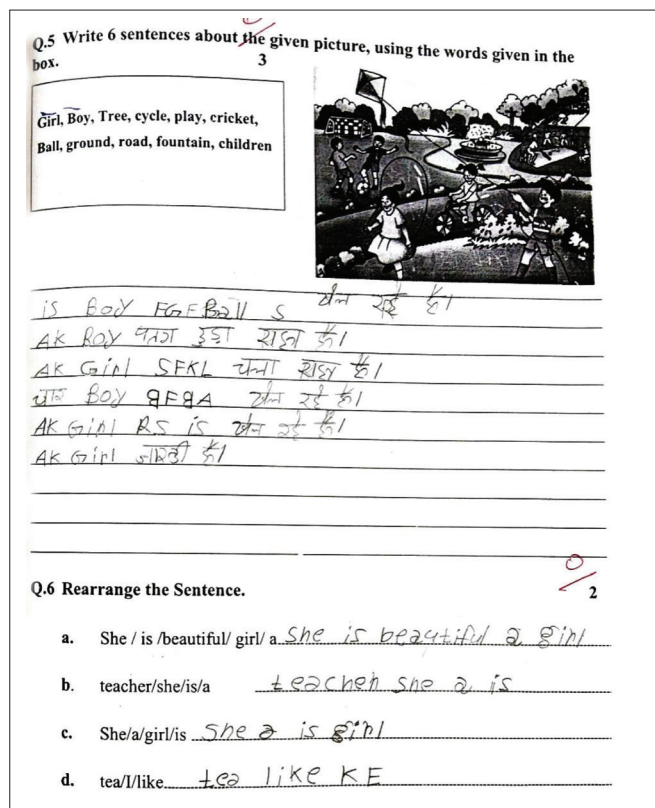 0
Q.5 Write 6 sentences about the given picture, using the words given in the
box. 3
Girl, Boy, Tree, cycle, play, cricket,
Ball, ground, road, fountain, children
is Boy FGFBall S खेल रहे हैं।
AK Boy पतग उड़ा राहा हैं।
AK Girl SFKL चला राहा हैं।
चार Boy खेल रहे हैं।
AK Girl RS is खेल रहे हैं।
AK Girl हैं।
0
Q.6 Rearrange the Sentence. 2
a. She / is /beautiful/ girl/ a She is beautiful a girl
b. teacher/she/is/a teacher she a is
c. She/a/girl/is She a is girl
d. tea/I/like tea like KE